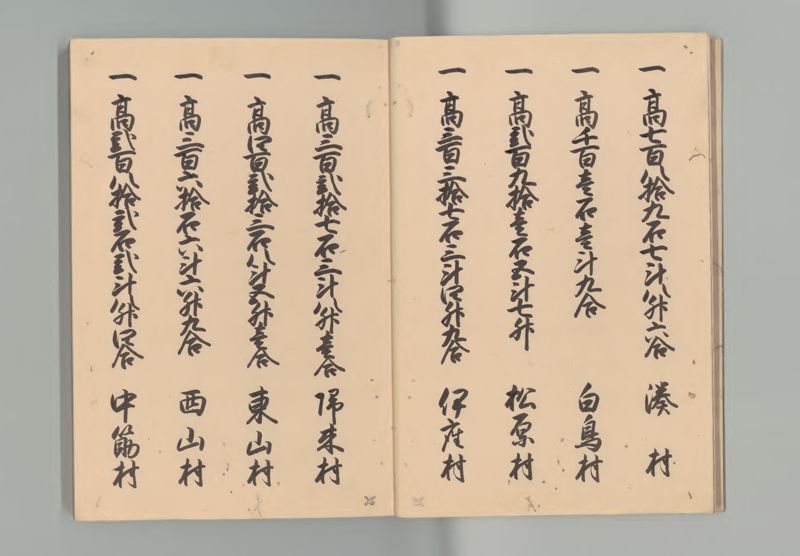 一 高七百八拾九石七斗八升六合 湊村
一 高千百壱石壱斗九合 白鳥村
一 高弐百九拾壱石五斗七升 松原村
一 高三百三拾七石三斗四升九合 伊座村
一 高三百弐拾七石三斗八升壱合 帰来村
一 高四百弐拾三石八斗五升壱合 東山村
一 高三百六拾石六斗六升九合 西山村
一 高弐百八拾弐石弐斗八升四合 中筋村